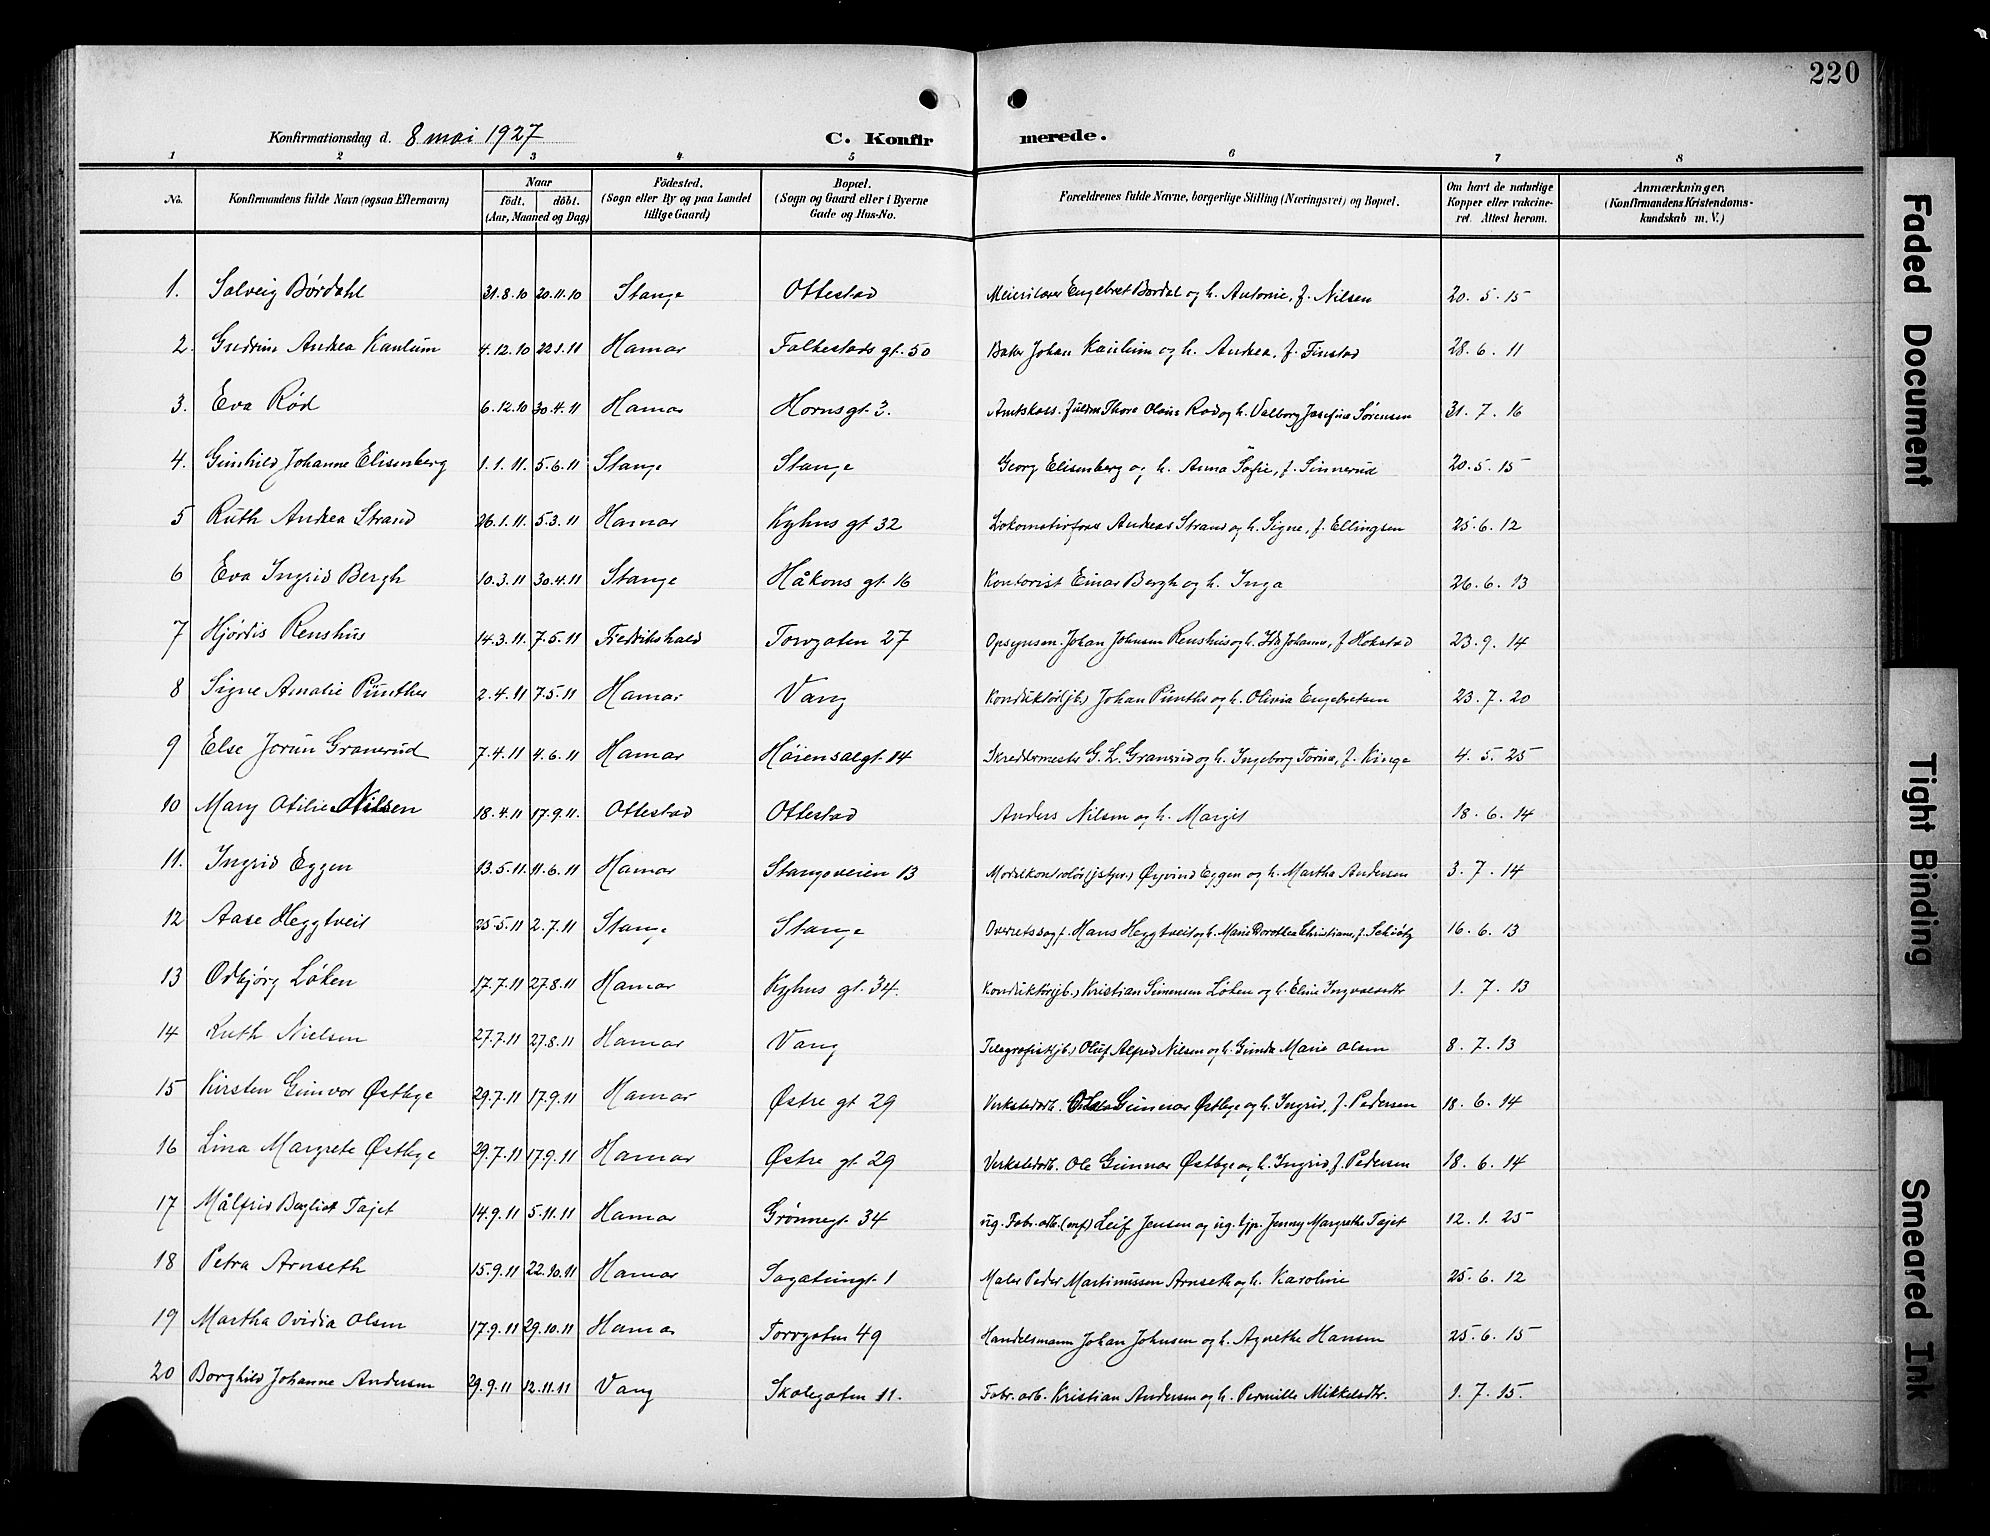 220
Konfirmationsdag d. 8 mai 1927 C. Konfirmerede.
1 2 3 4 5 6 7 8
No. Konfirmandens fulde Navn (ogsaa Efternavn) Naar født. døbt. (Aar, Maaned og Dag) Fødested. (Sogn eller By og paa Landet tillige Gaard) Bopæl. (Sogn og Gaard eller i Byerne Gade og Hus-No. Forældrenes fulde Navne, borgerlige Stilling (Næringsvei) og Bopæl. Om havt de naturlige Kopper eller vakcineret. Attest herom. Anmærkninger. (Konfirmandens Kristendomskundskab m. V.)
1. Solveig Børdahl 31.8.10 20.11.10 Stange Ottestad Engebret Børdal og h. Antonie, f. Nilsen 20.5.15
2. Gudrun Andrea Kaulum 4.12.10 22.1.11 Hamar Folkestads gt. 50 Baker Johan Kaulum og h. Andrea, f. Finstad 28.6.11
3. Eva Rød 6.12.10 30.4.11 Hamar Horns gt 3. Amtskass. fuldm Thore Olaus Rød og h. Valborg Josefine Sørensen 31.7.16
4. Gunhild Johanne Elisenberg 1.1.11. 5.6.11 Stange Stange Georg Elisenberg og h. Anna Sofie, f. Sinnerud 20.5.15
5 Ruth Andrea Strand 26.1.11. 5.3.11 Hamar Kyhus gt 32 Lokomotivfører Andreas Strand og h. Signe, f. Ellingsen 25.6.12
6 Eva Ingrid Bergh 10.3.11 30.4.11 Stange Håkons gt. 16 Kontorist Einar Bergh og h. Inga 26.6.13
7 Hjørdis Renshus 14.3.11. 7.5.11 Fredrikshald Torvgaten 27 Opsynsm. Johan Johnsen Renshus og h. Ida Johanne, f Hokstad 23.9.14
8 Signe Amalie Punther 2.4.11 7.5.11 Hamar Vang Konduktør (jb.) Johan Punther og h. Olivia Engebretsen 23.7.20
9 Else Jorun Granerud 7.4.11 4.6.11 Hamar Høiensalgt. 14 Skreddermester G. L. Granerud og h. Ingeborg Torine, f. Kinge 4.5.25
10 Mary Otilie Nilsen 18.4.11 17.9.11. Ottestad Ottestad Anders Nilsen og h. Margit 18.6.14
11. Ingrid Eggen 13.5.11. 11.6.11 Hamar Stangeveien 13 Øyvind Eggen og h. Martha Andersen 3.7.14
12 Aase Heggtveit 25.5.11 2.7.11 Stange Stange Overretssagf. Hans Heggtveit og h. Marie Dorothea Christiane, f. Schiøtz 16.6.13
13 Odbjørg Løken 17.7.11 27.8.11 Hamar Kyhus gt. 34. Konduktør (jb.) Kristian Simensen Løken og h. Eline Ingvalsdtr 1.7.13
14 Ruth Nielsen 27.7.11 27.8.11 Hamar Vang Telegrafist (jb.) Oluf Alfred Nilsen og h. Gunda Marie Olsen 8.7.13
15 Kirsten Gunvor Østbye 29.7.11 17.9.11 Hamar Østre gt 29 Verkstedarb. Ole Gunnar Østbye og h. Ingrid, f. Pedersen 18.6.14
16 Lina Margrete Østbye 29.7.11 17.9.11 Hamar Østre gt. 29 Verkstedarb. Ole Gunnar Østbye og h. Ingrid, f. Pedersen 18.6.14
17 Målfrid Bergliot Tajet 14.9.11 5.11.11 Hamar Grønnegt. 34 ug. Fabr. arb. (enf) Leif Jensen og ug. tjp. Jenny Margrethe Tajet 12.1.25
18 Petra Arnseth 15.9.11 22.10.11 Hamar Sagatungt. 1 Maler Peder Martinussen Arnseth og h. Karoline 25.6.12
19 Martha Ovidia Olsen 17.9.11 29.10.11 Hamar Torvgaten 49 Handelsmann Johan Johnsen og h. Agnethe Hansen 25.6.15
20 Borghild Johanne Andersen 29.9.11 12.11.11 Vang Skolegaten 11. Fabr. arb. Kristian Andersen og h. Pernille Mikkelsdtr. 1.7.15.
Faded Document
Tight Binding
Smeared Ink